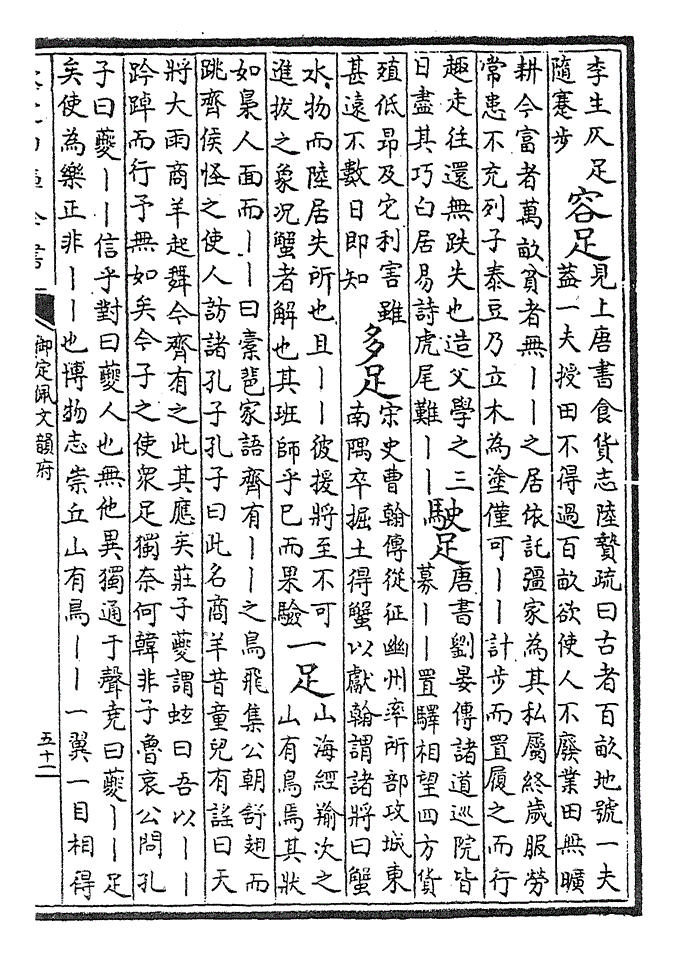 李生仄足
隨蹇步
容足
見上唐書食貨志陸贄疏曰古者百畝地號一夫
蓋一夫授田不得過百畝欲使人不廢業田無曠
耕今富者萬畝貧者無丨丨之居依託彊家為其私屬終歲服勞
常患不充列子泰豆乃立木為塗僅可丨丨計步而置履之而行
趣走往還無跌失也造父學之三
日盡其巧白居易詩虎尾難丨丨
駛足
唐書劉晏傳諸道巡院皆
募丨丨置驛相望四方貨
殖低昂及它利害雖
甚遠不數日即知
多足
宋史曹翰傳從征幽州率所部攻城東
南隅卒掘土得蟹以獻翰謂諸將曰蟹
水物而陸居失所也且丨丨彼援將至不可
進拔之象况蟹者解也其班師乎已而果驗
一足
山海經羭次之
山有鳥焉其狀
如梟人面而丨丨曰橐家語齊有丨丨之鳥飛集公朝舒翅而
跳齊侯怪之使人訪諸孔子孔子曰此名商羊昔童兒有謡曰天
將大雨商羊起舞今齊有之此其應矣莊子夔謂蚿曰吾以丨丨
趻踔而行予無如矣今子之使衆足獨奈何韓非子魯哀公問孔
子曰夔丨丨信乎對曰夔人也無他異獨通于聲堯曰夔丨丨足
矣使為樂正非丨丨也博物志崇丘山有鳥丨丨一翼一目相得
御定佩文韻府
五十二